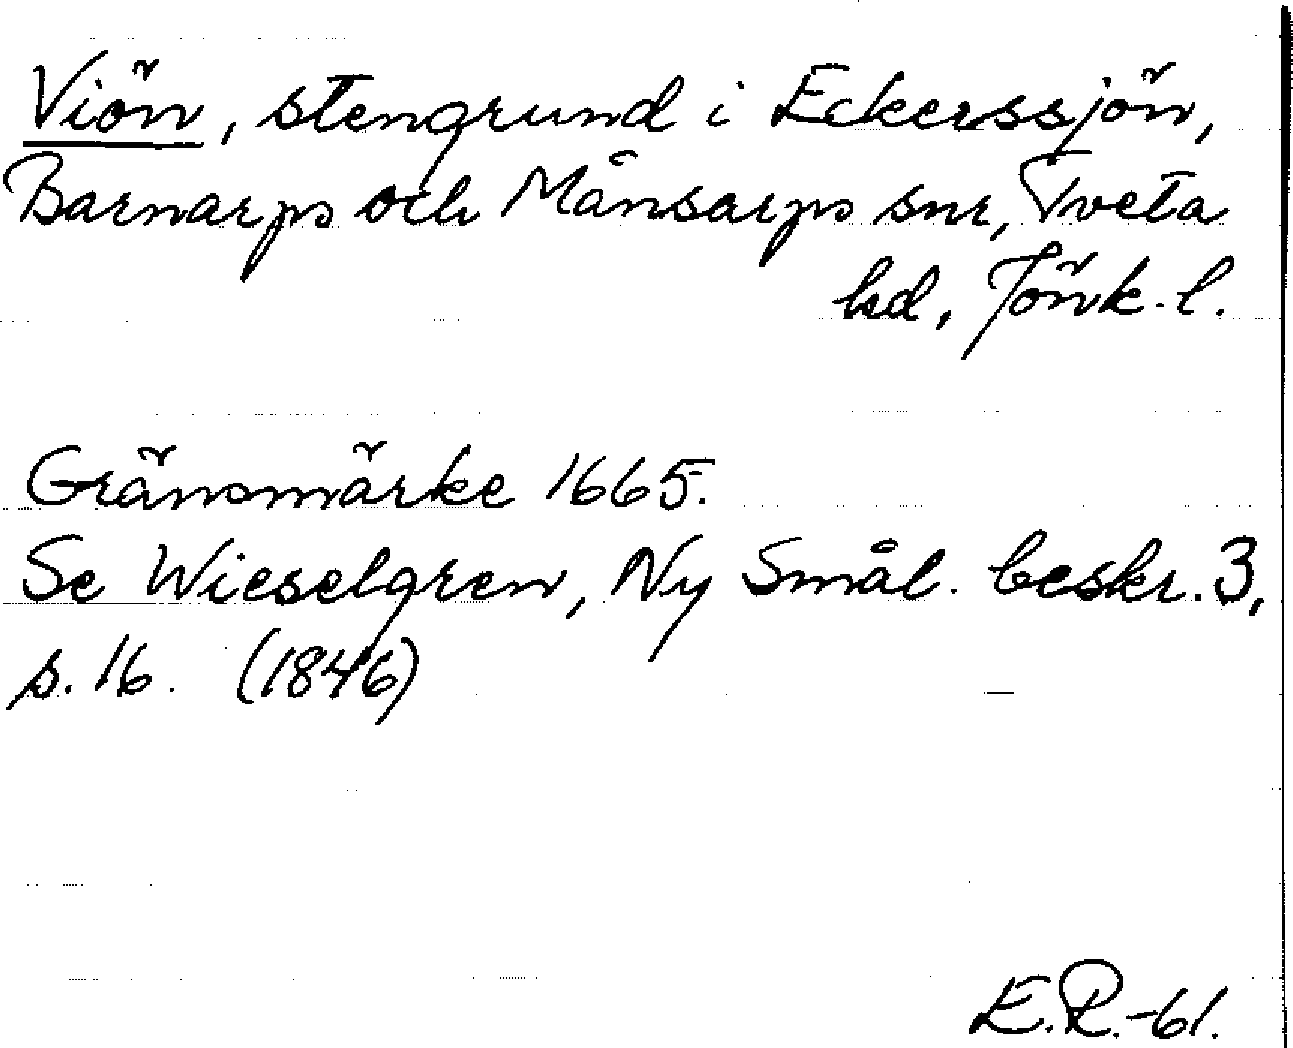 Viön, stengrund i Eckerssjön,
Barnarps och Månsarps snr, Tveta
hd, Jönk. l.
Gränsmärke 1665.
Se Wieselgren, Ny Smål. beskr. 3,
s. 16. (1846)
E.R.-61.